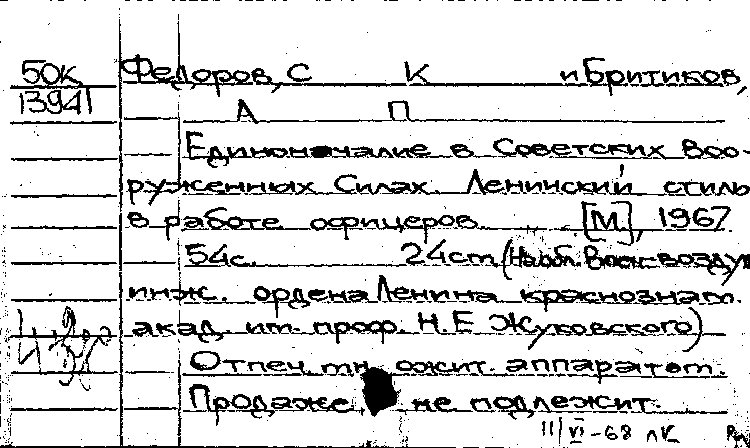 50К Федоров, С К и Бритиков,
13941 А П
Единоначалие в Советских Воо-
руженных Силах. Ленинский стиль
в работе офицеров. [М.], 1967.
54с. 24ст. (На обл. Воен-воздуш
инж. ордена Ленина краснознам.
акад. им. проф. Н.Е Жуковского)
Отпеч. мн ожит. аппаратом.
Продаже не подлежит.
11/VI-68 лк